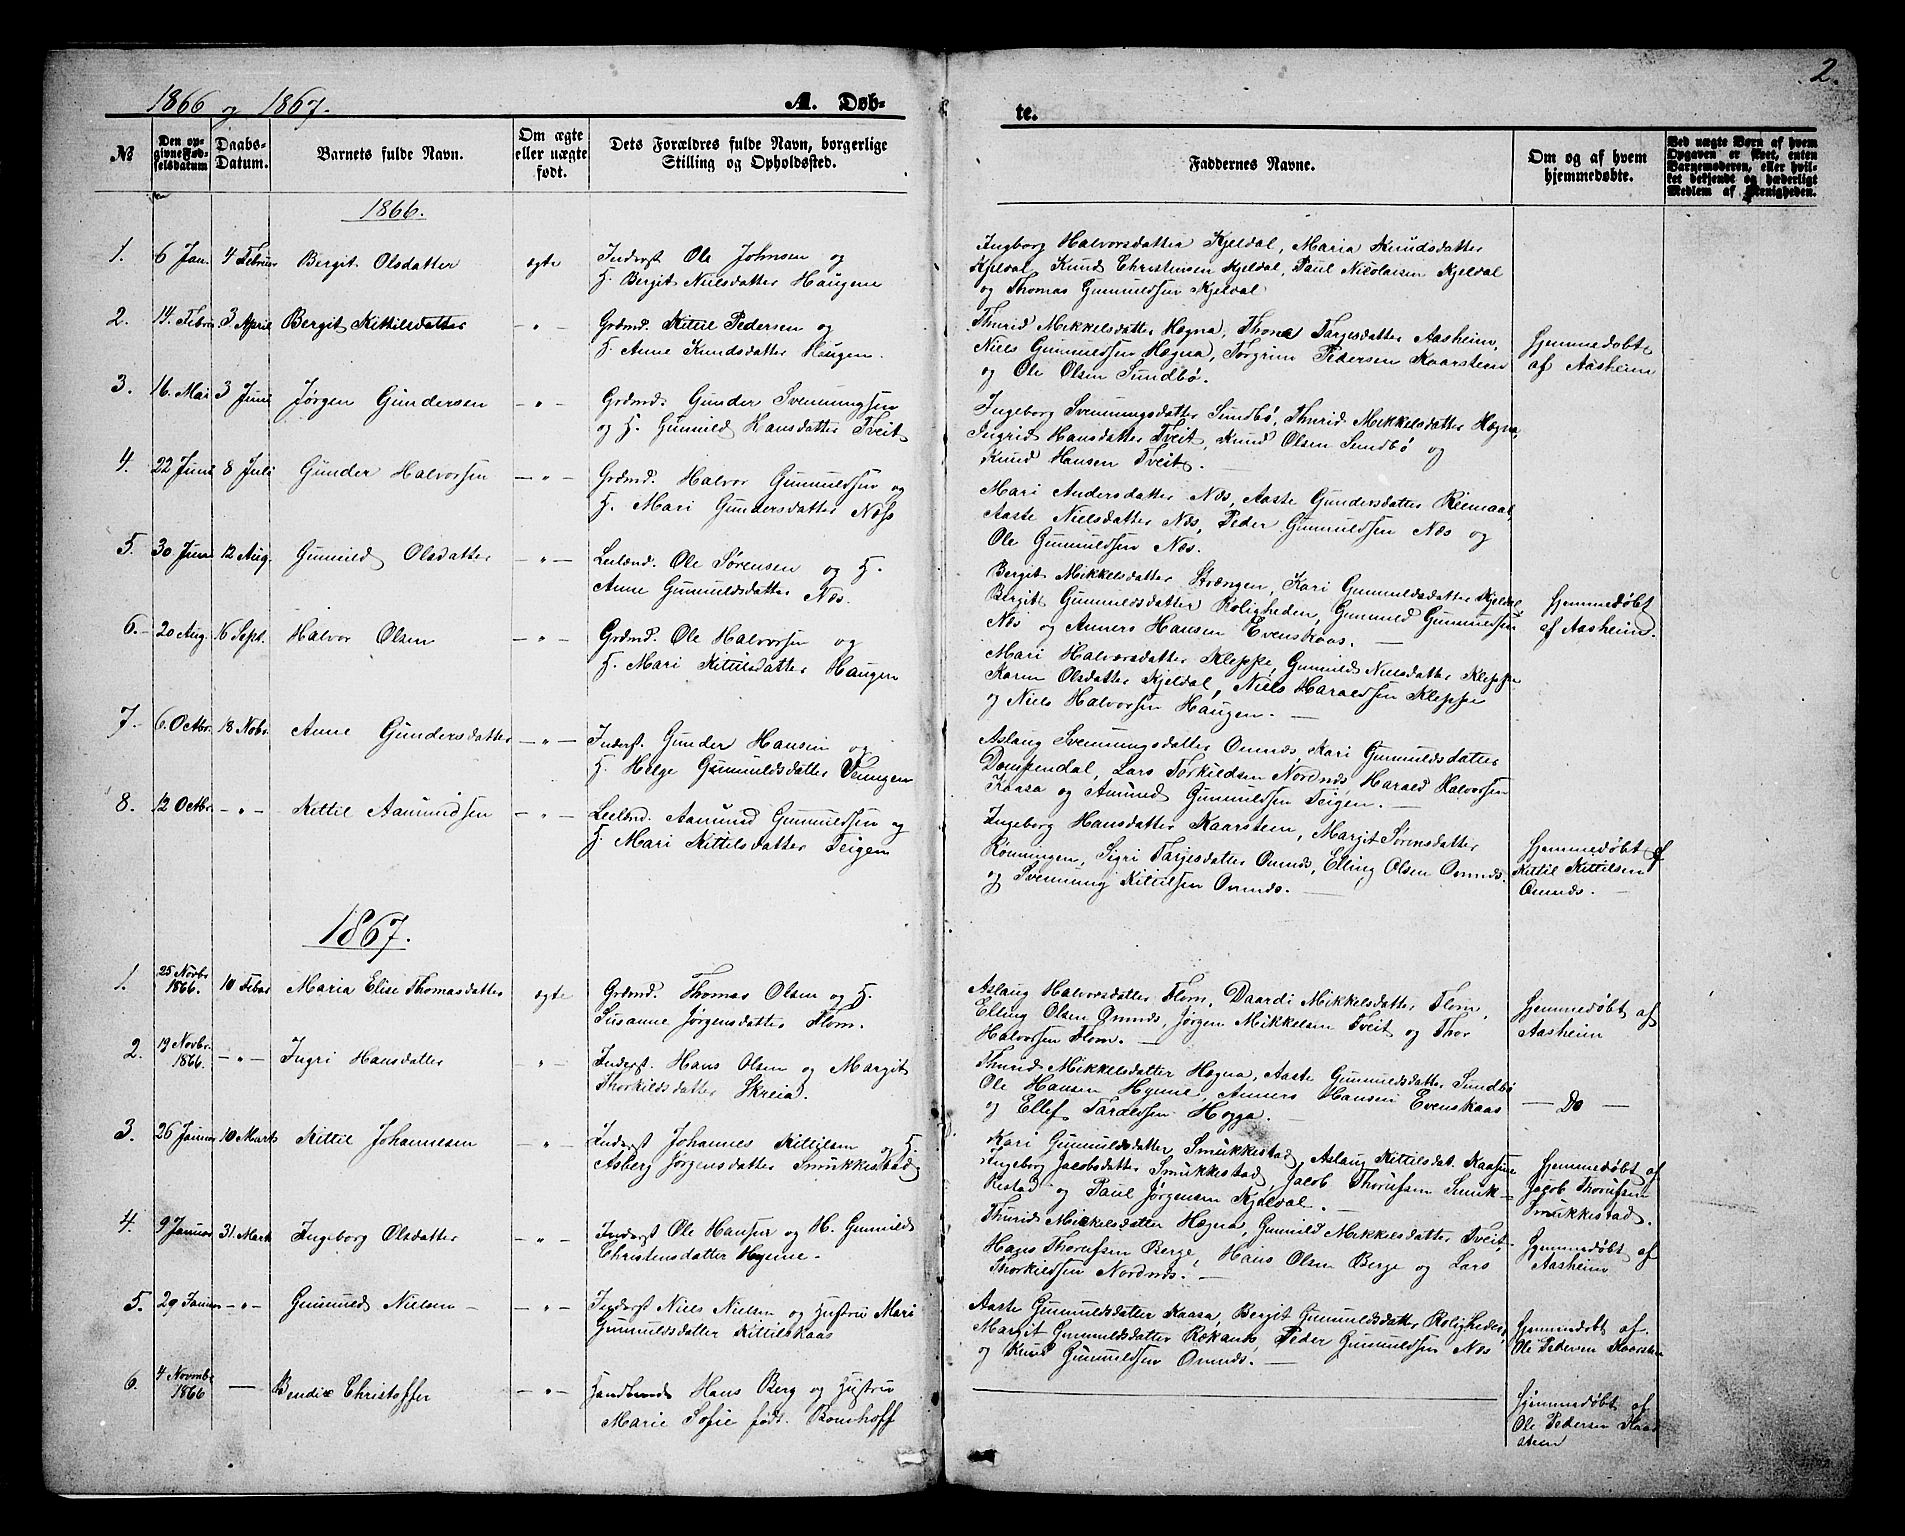 2.
1866 og 1867.
A. Døb-
te.
№
Den op-
givne Fød-
selsdatum
Daabs-
Datum.
Barnets fulde Navn.
Om ægte
eller uægte
født.
Dets Forældres fulde Navn, borgerlige
Stilling og Opholdssted.
Faddernes Navne.
Om og af hvem
hjemmedøbte.
Ved uægte Børn af hvem
Opgaven er sket, enten
Barnemoderen, eller hvil-
ket bekjendt og hæderligt
Medlem af Menigheden.
1866.
1. 6 Jan. 4 Februar Bergit Olsdatter ægte Inderst Ole Johnsen og
H. Bergit Nielsdatter Haugene
Ingborg Halvorsdatter Kjeldal, Maria Knudsdatter
Kjeldal Knud Christensen Kjeldal, Paul Nicolaisen Kjeldal
og Thomas Gunnuldsen Kjeldal
2. 14. Febr. 3 April Bergit Kittilsdatter — " — Grdmd. Kittil Pedersen og
H. Anne Knudsdatter Haugen.
Thurid Mikkelsdatter Hægna, Thone Tarjesdatter Aasheim,
Niels Gunnuldsen Hægna, Torgrim Pedersen Kaarstein
og Ole Olsen Sundbø.
Hjemmedøbt
af Aasheim
3. 16. Mai 3 Juni Jørgen Gundersen — " — Grdmd. Gunder Svenningsen
og H. Gunnild Hansdatter Tveit
Ingeborg Svenningsdatter Sundbø, Thurid Mikkelsdatter Hægna,
Ingrid Hansdatter Tveit, Knud Olsen Sundbø og
Knud Hansen Tveit.
4. 22 Juni 8 Juli Gunder Halvorsen — " — Grdmd. Halvor Gunnuldsen og
H. Mari Gundersdatter Næss
Mari Andersdatter Næs, Aaste Gundersdatter
Aaste Nielsdatter Næs, Peder Gunnuldsen Næs og
Ole Gunnuldsen Næs.
5. 30 Juni 12 Aug. Gunnild Olsdatter — " — Leilænd. Ole Sørensen og H.
Anne Gunnuldsdatter Næs.
Bergit Mikkelsdatter Strængen, Kari Gunnuldsdatter Kjeldal,
Bergit Gunnuldsdatter Roligheden, Gunnuld Gunnuldsen
Næs og Anners Hansen Evenskaas. —
Hjemmedøbt
af Aasheim.
6. 20 Aug. 16 Sept. Halvor Olsen — " — Grdmd. Ole Halvorsen og
H. Mari Kittilsdatter Haugen
Mari Halvorsdatter Kleppe, Gunnild Nielsdatter Kleppe
Karen Olsdatter Kjeldal, Niels Haraldsen Kleppe
og Niels Halvorsen Haugen. —
7. 6. Octbr. 18 Nobr. Anne Gundersdatter — " — Inderst. Gunder Hansen og
H. Helge Gunnuldsdatter
Aslaug Svenningsdatter Omnæs, Kari Gunnuldsdatter
Dompendal, Lars Torkildsen Nordnæs, Harald Halvorsen
Kaasa og Amund Gunnuldsen Teigen. —
8. 12 Octbr. — " — Kittil Aamundsen — " — Leilænd. Aamund Gunnuldsen og
H. Mari Kittilsdatter Teigen
Ingeborg Hansdatter Kaarstein, Margit Sørensdatter
Rønningen, Sigri Tarjesdatter Omnæs, Elling Olsen Omnæs.
og Svennung Kittilsen Omnæs. —
Hjemmedøbt af
Kittil Kittilsen
Omnæs. —
1867.
1. 25 Novbr 1866. 10 Febar Maria Elise Thomasdatter ægte Grdmd. Thomas Olsen og H.
Susanne Jørgensdatter Flom.
Aslaug Halvorsdatter Flom, Daardi Mikkelsdatter Flom,
Elling Olsen Omnæs, Jørgen Mikkelsen Tveit og Thor
Halvorsen Flom. —
Hjemmedøbt af
Aasheim
2. 19 Novbr. 1866. — " — Ingri Hansdatter " Inderst. Hans Olsen og Margit
Thorkildsdatter Skreia.
Thurid Mikkelsdatter Hægna, Aaste Gunnuldsdatter Sundbø
Ole Hansen Hynne, Anners Hansen Evenskaas
og Ellef Taraldsen Hogga. —
— Do —
3. 26 Januar 10 Marts Kittil Johannesen — " — Inderst Johannes Kittilsen og H.
Asberg Jørgensdatter Smukkestad
Kari Gunnuldsdatter Smukkestad, Aslaug Kittilsdat. Kaasene
Ingeborg Jacobsdatter Smukkestad, Jacob Thorufsen Smuk-
kestad og Paul Jørgensen Kjeldal.
Hjemmedøbt af
Jacob Thorufsen
Smukkestad.
4. 9 Januar 31. Marts Ingeborg Olsdatter — " — Inderst Ole Hansen og H. Gunnild
Christensdatter Hynne.
Thurid Mikkelsdatter Hægna, Gunnild Mikkelsdatter Tveit,
Hans Thorufsen Berge, Hans Olsen Berge og Lars
Thorkildsen Nordnæs. —
Hjemmedøbt af
Aasheim
5. 29 Januar — " — Gunnuld Nielsen — — " — Inderst Niels Nielsen og Hustru Mari
Gunnuldsdatter Kittilskaas
Aaste Gunnuldsdatter Kaasa, Bergit Gunnuldsdatter Roligheden,
Margit Gunnuldsdatter Peder Gunnuldsen Næs
og Knud Gunnuldsen Omnæs. —
Hjemmedøbt af.
Ole Pedersen Kaarstein
6. 4 Novmbr 1866 — Bendix Christoffer — " — Handlende Hans Berg og Hustru
Marie Sofie født. Bomhoff
Hjemmedøbt af
Ole Pedersen Kaar
stein